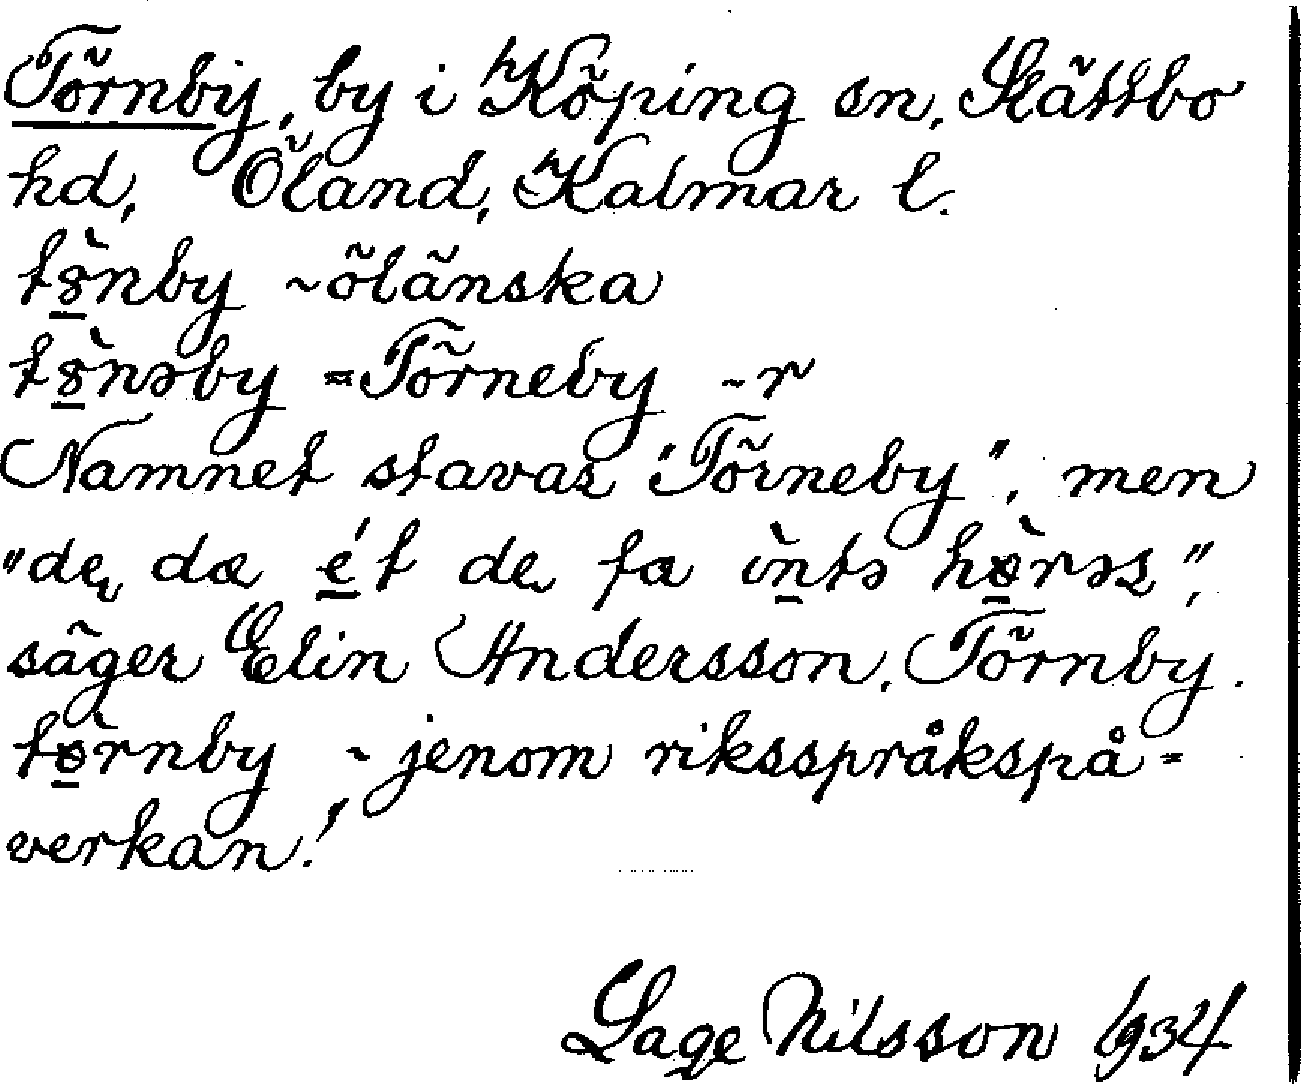 Törnby, by i Köping sn, Slättbo
hd, Öland, Kalmar l.
tö̀nby ~ öländska
tö̀nəby = Törneby ~ r
Namnet stavas "Törneby", men
"de dæ ét de fa ìntə hø̀rəs",
säger Elin Andersson, Törnby.
tø̀rnby ~ jenom riksspråkspå=
verkan!
Sage Nilsson 1934